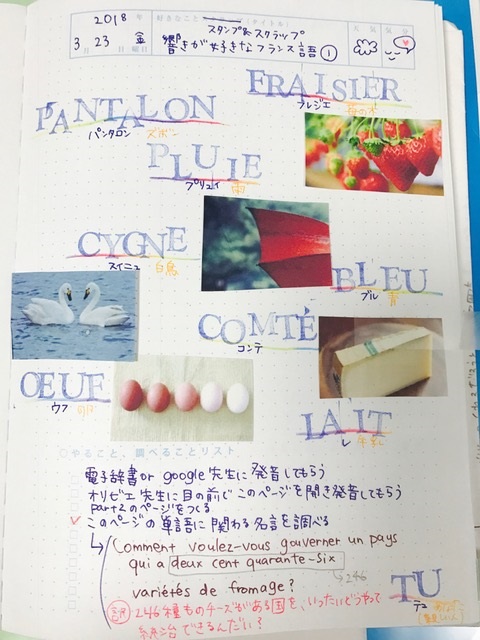 2018 年
3 月 23 日 金 曜日
好きなこと (タイトル)
スタンプ&スクラップ
響きが好きなフランス語①
天気 気分
FRAISIER
フレジエ 苺の木
PANTALON
パンタロン ズボン
PLUIE
プリュイ 雨
CYGNE
スイニュ 白鳥
BLEU
ブル 青
COMTÉ
コンテ
OEUF
ウフ 卵
LAIT
レ 牛乳
やること、調べることリスト
電子辞書or google先生に発音してもらう
オリビエ先生に目の前でこのページを開き発音してもらう
part2のページをつくる
✓ このページの単語に関わる名言を調べる
Comment voulez-vous gouverner un pays
qui a deux cent quarante-six
→246
variétés de fromage?
訳 246種ものチーズがある国を、いったいどうやって
統治できるんだい?
TU
テュ